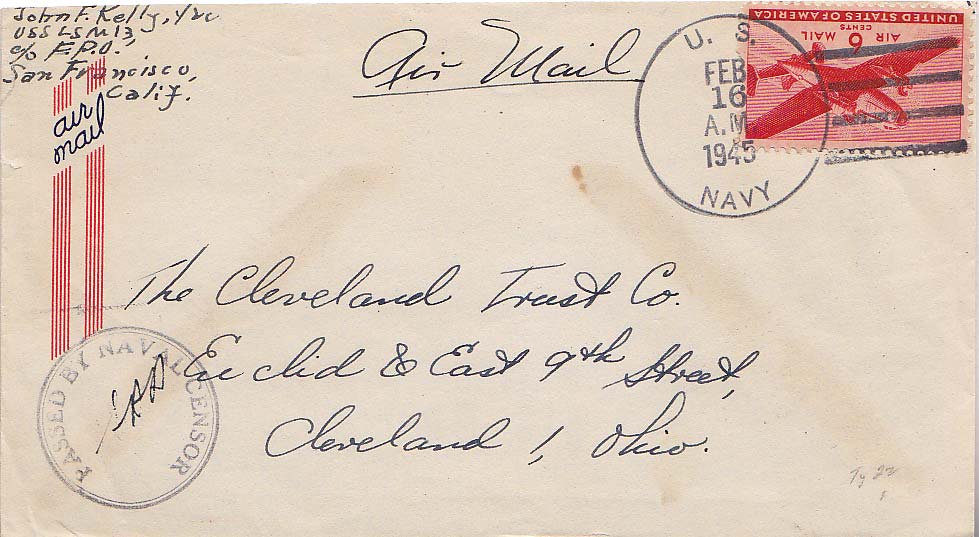 John F. Kelly, Y2c
USS LSM 13,
c/o F.P.O.,
San Francisco,
Calif.
air
mail
Air Mail
U. S.
FEB
16
A.M.
1945
NAVY
UNITED STATES OF AMERICA
6 CENTS
AIR MAIL
The Cleveland Trust Co.
Euclid & East 9th Street,
Cleveland 1, Ohio.
PASSED BY NAVAL CENSOR